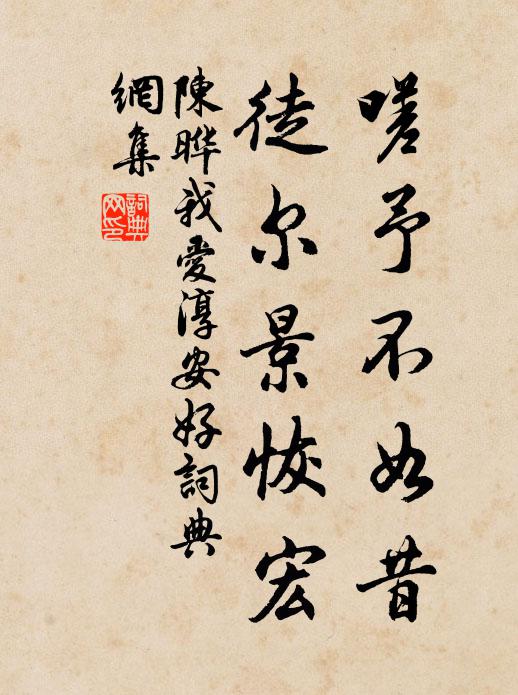 嗟予不如昔
徒尔景恢宏
陳曄我愛淳安好詞典
網集
詞典
网印